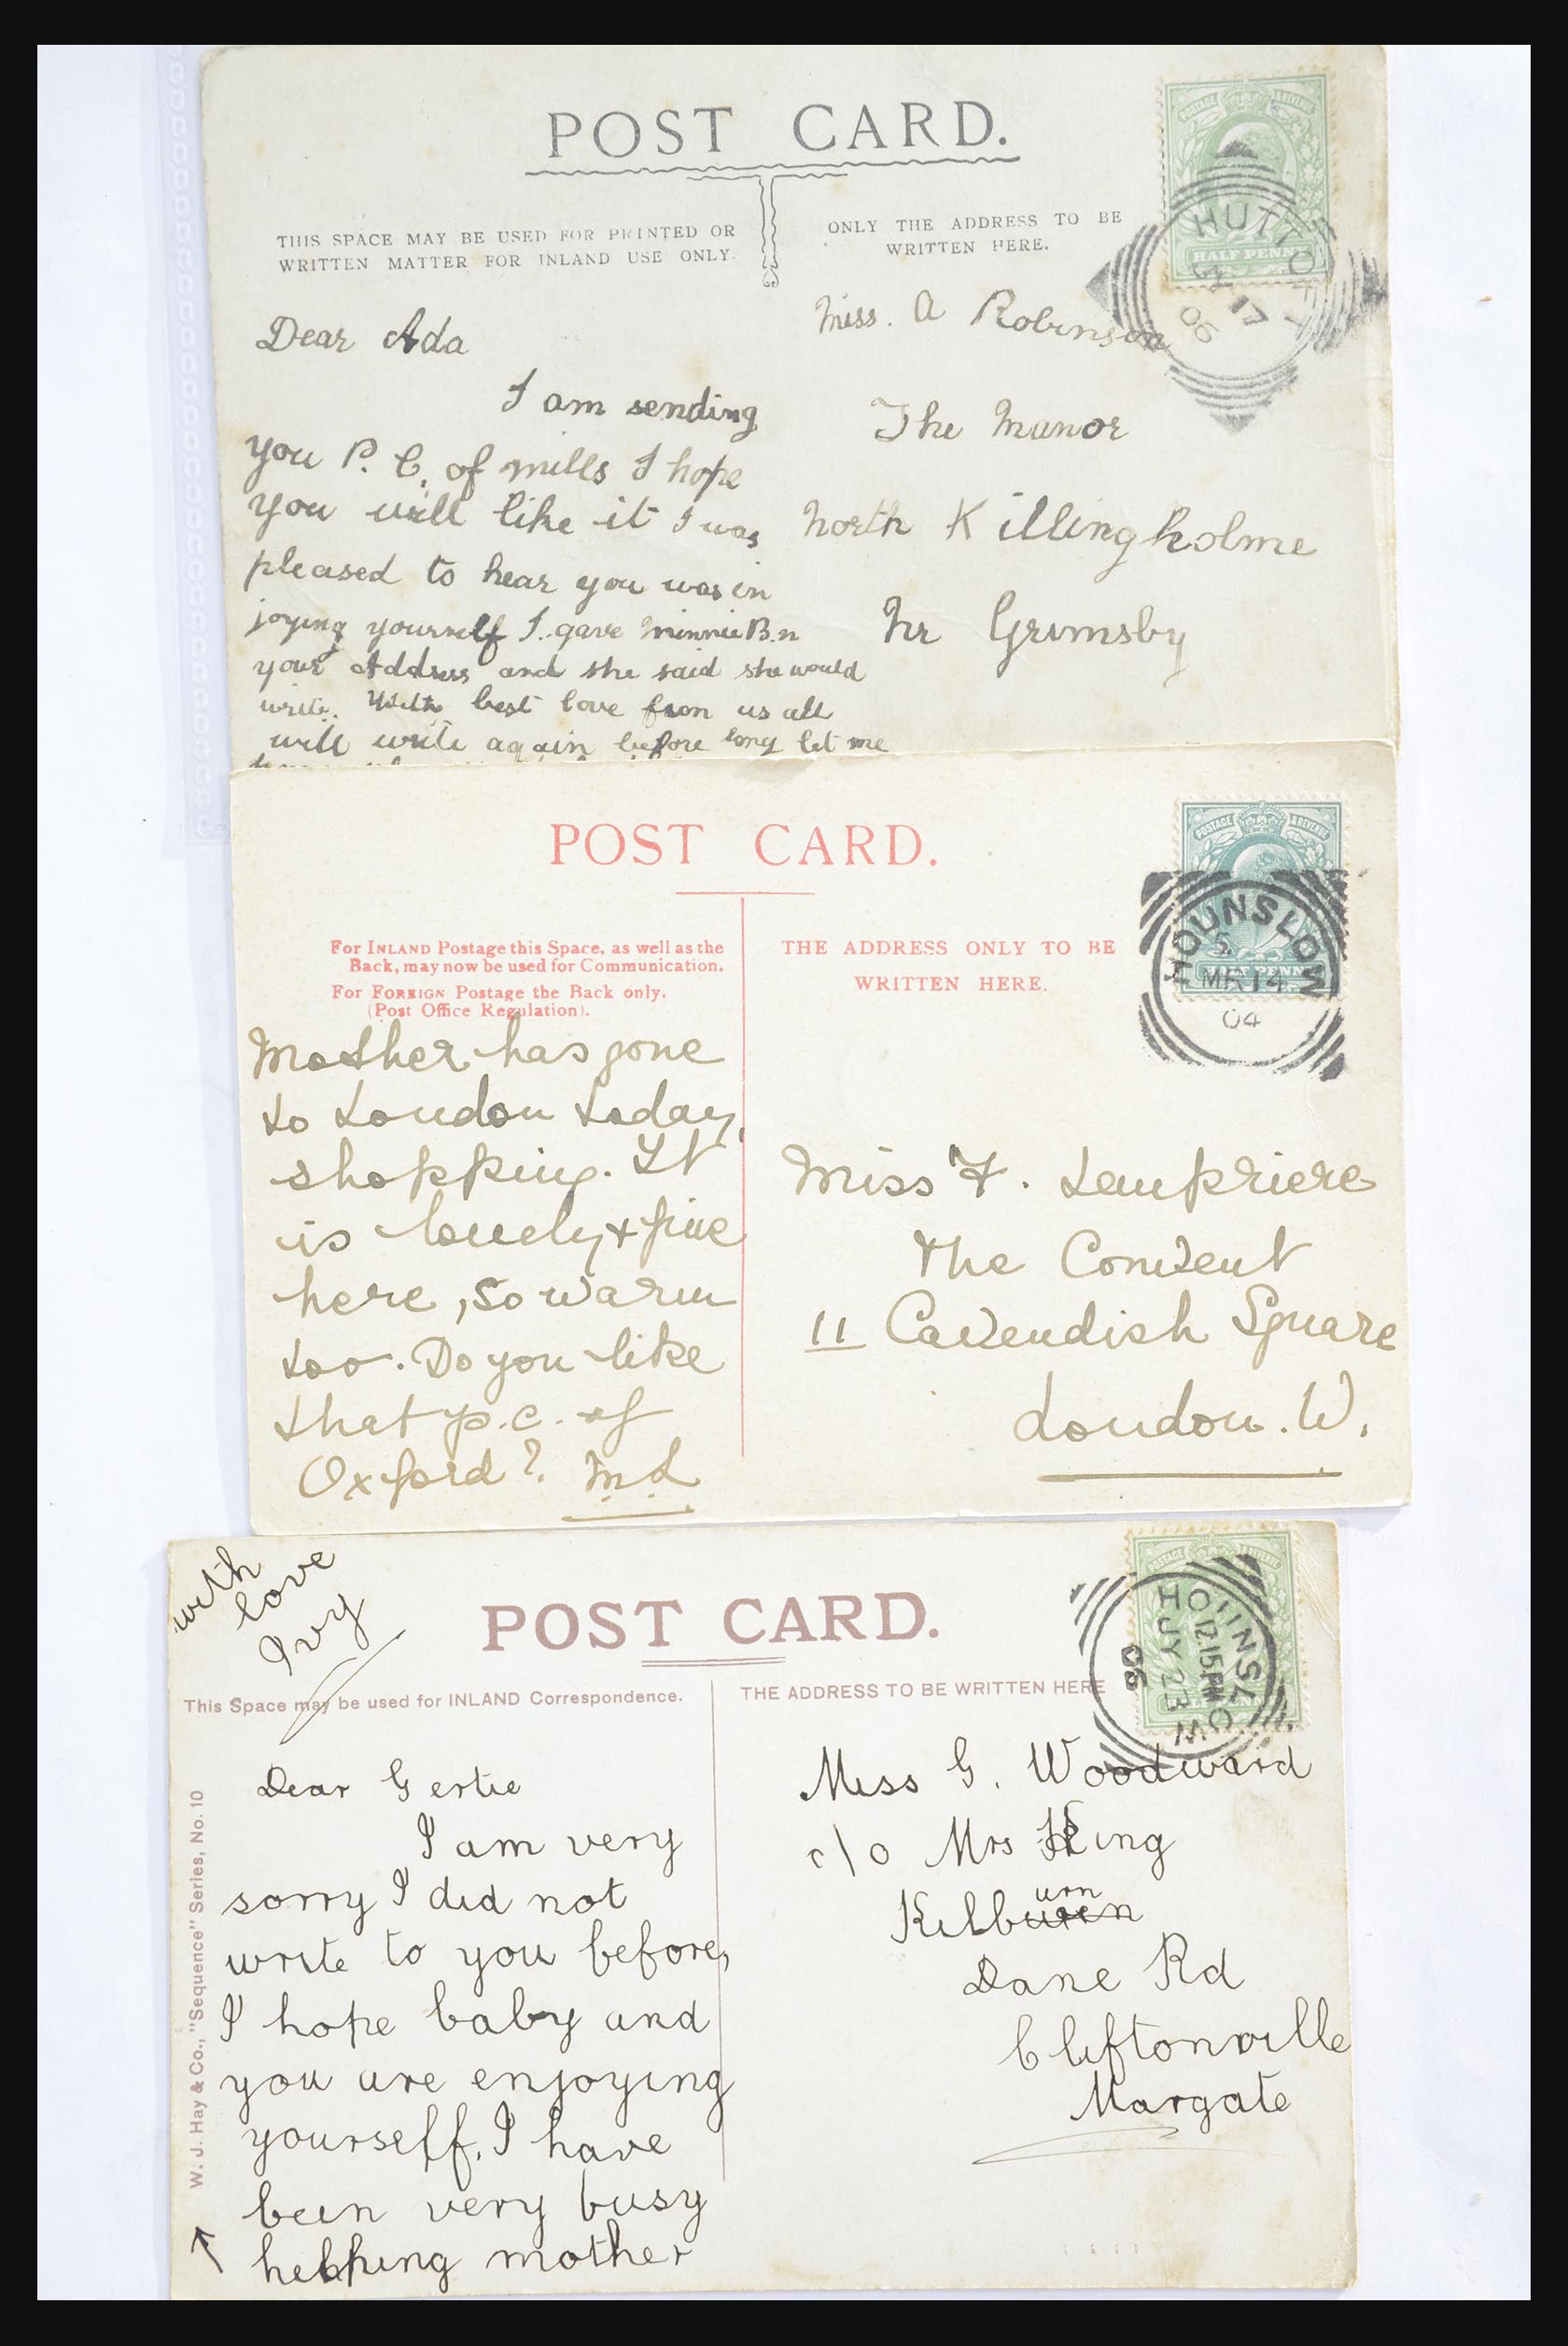 POST CARD.
THIS SPACE MAY BE USED FOR PRINTED OR
WRITTEN MATTER FOR INLAND USE ONLY.
ONLY THE ADDRESS TO BE
WRITTEN HERE.
HALF PENNY
HUTTOFT
17
06
Dear Ada
I am sending
you P. C. of mills I hope
you will like it I was
pleased to hear you was in
joying yourself I gave Minnie B.n
your Address and she said she would
write. With best love from us all
will write again before long let me
Miss. A Robinson
The Manor
North Killingholme
Nr Grimsby
POST CARD.
For INLAND Postage this Space, as well as the
Back, may now be used for Communication.
For FOREIGN Postage the Back only.
(Post Office Regulation).
THE ADDRESS ONLY TO BE
WRITTEN HERE.
POSTAGE & REVENUE
HOUNSLOW
MR 14
04
Mother has gone
to London today,
shopping. It
is lovely & fine
here, so warm
too. Do you like
that p.c. of
Oxford? M.L
Miss F. Lempriere
The Convent
11 Cavendish Square
London. W.
with
love
Ivy
POST CARD.
This Space may be used for INLAND Correspondence.
THE ADDRESS TO BE WRITTEN HERE
HOUNSLOW
12.15PM
JY 23
06
W. J. Hay & Co., "Sequence" Series, No. 10
Dear Gertie
I am very
sorry I did not
write to you before,
I hope baby and
you are enjoying
yourself. I have
been very busy
helping mother
Miss G. Woodward
c/o Mrs King
Kilburn
Dane Rd
Cliftonville
Margate